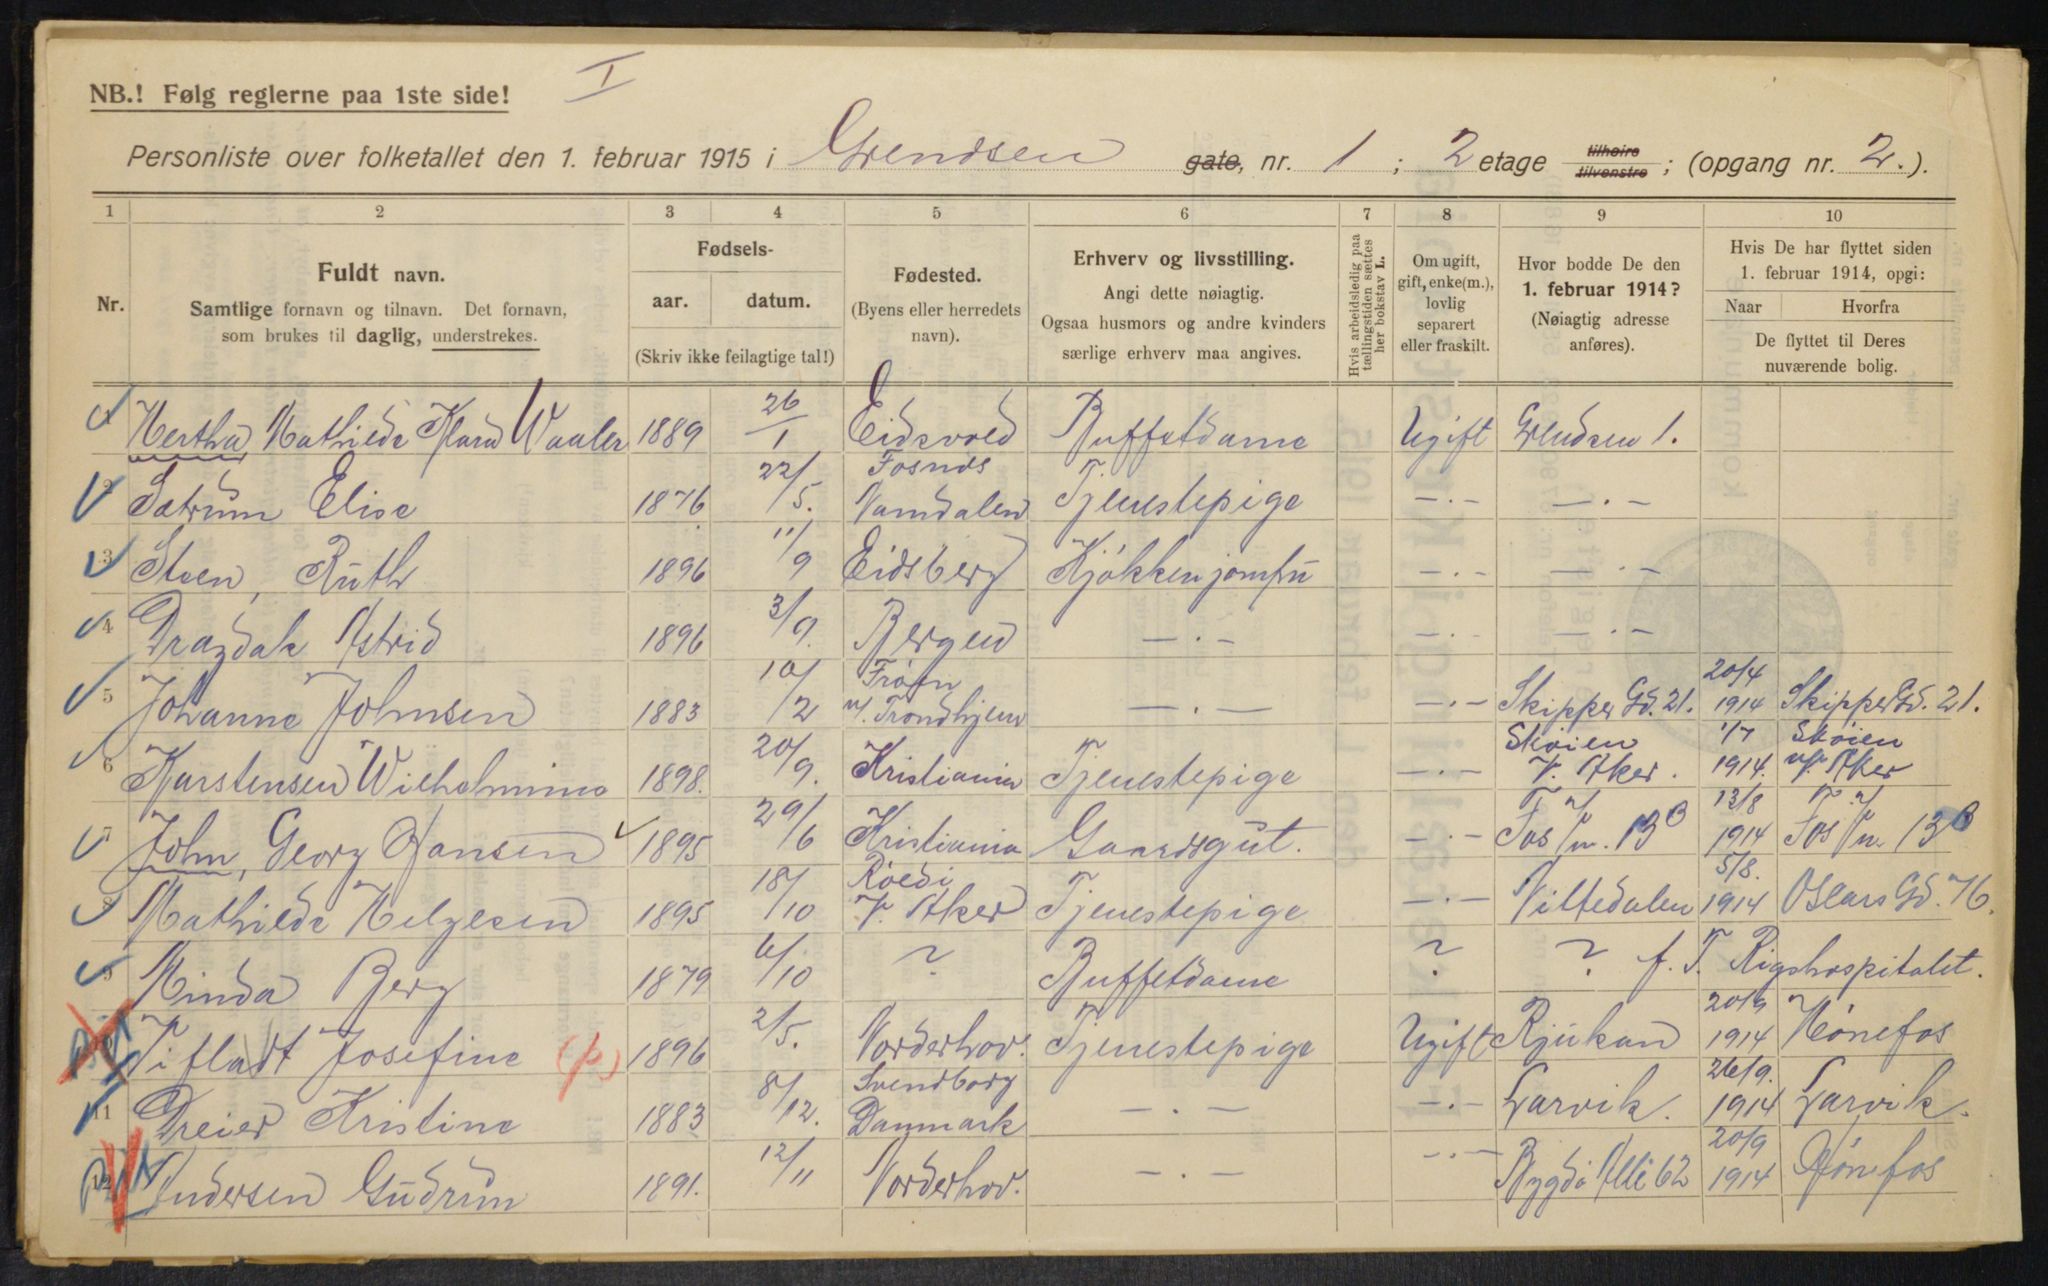 I
NB.! Følg reglerne paa 1ste side!
Personliste over folketallet den 1. februar 1915 i Grendsen gate, nr. 1 ; 2 etage tilhøire tilvenstre ; (opgang nr. 2.).
1 2 3 4 5 6 7 8 9 10
Nr.
Fuldt navn.
Samtlige fornavn og tilnavn. Det fornavn,
som brukes til daglig, understrekes.
Fødsels-
aar. datum.
(Skriv ikke feilagtige tal!)
Fødested.
(Byens eller herredets
navn).
Erhverv og livsstilling.
Angi dette nøiagtig.
Ogsaa husmors og andre kvinders
særlige erhverv maa angives.
Hvis arbeidsledig paa
tællingstiden sættes
her bokstav L.
Om ugift,
gift, enke(m.),
lovlig
separert
eller fraskilt.
Hvor bodde De den
1. februar 1914?
(Nøiagtig adresse
anføres).
Hvis De har flyttet siden
1. februar 1914, opgi:
Naar Hvorfra
De flyttet til Deres
nuværende bolig.
1 Hertha Mathilde Klara Waaler 1889 26/1 Eidsvold Buffetdame Ugift Grendsen 1.
2 Sætrum Elise 1876 22/5. Fosnæs Namdalen Tjenestepige —·— —·—
3 Steen, Ruth 1896 11/9 Eidsberg Kjøkkenjomfru —·— —·—
4 Dragdal Astrid 1896 3/9. Bergen —·— —·— —·—
5 Johanne Johnsen 1883 10/2 n/. Trondhjem —·— —·— Skipper Gd. 21. 20/4 1914 Skipper Gd. 21.
6 Karstensen Wilhelmine 1898. 20/9. Kristiania Tjenestepige —·— Skøien V. Aker. 1/7 1914. Skøien V. Aker
7 John, Georg Hansen 1895 29/6 Kristiania Gaardsgut. —·— 13 B 13/8 1914 13 B
8 Mathilde Helgesen 1895 18/10 V. Aker Tjenestepige —·— 5/8. 1914 Oscars Gd. 76.
9 Minda Berg 1879 6/10 ? Buffetdame ? ? f. T. Rigshospitalet.
10 Vifladt Josefine (p) 1896 2/5. Norderhov. Tjenestepige Ugift Rjukan 20/9 1914 Hønefos
11 Dreier Kristine 1883 8/12. Svendborg Danmark —·— —·— Larvik. 26/9. 1914 Larvik.
12 Andersen Gudrun 1891. 12/11 Norderhov. —·— —·— Bygdø Alle 62 20/9 1914 Hønefos